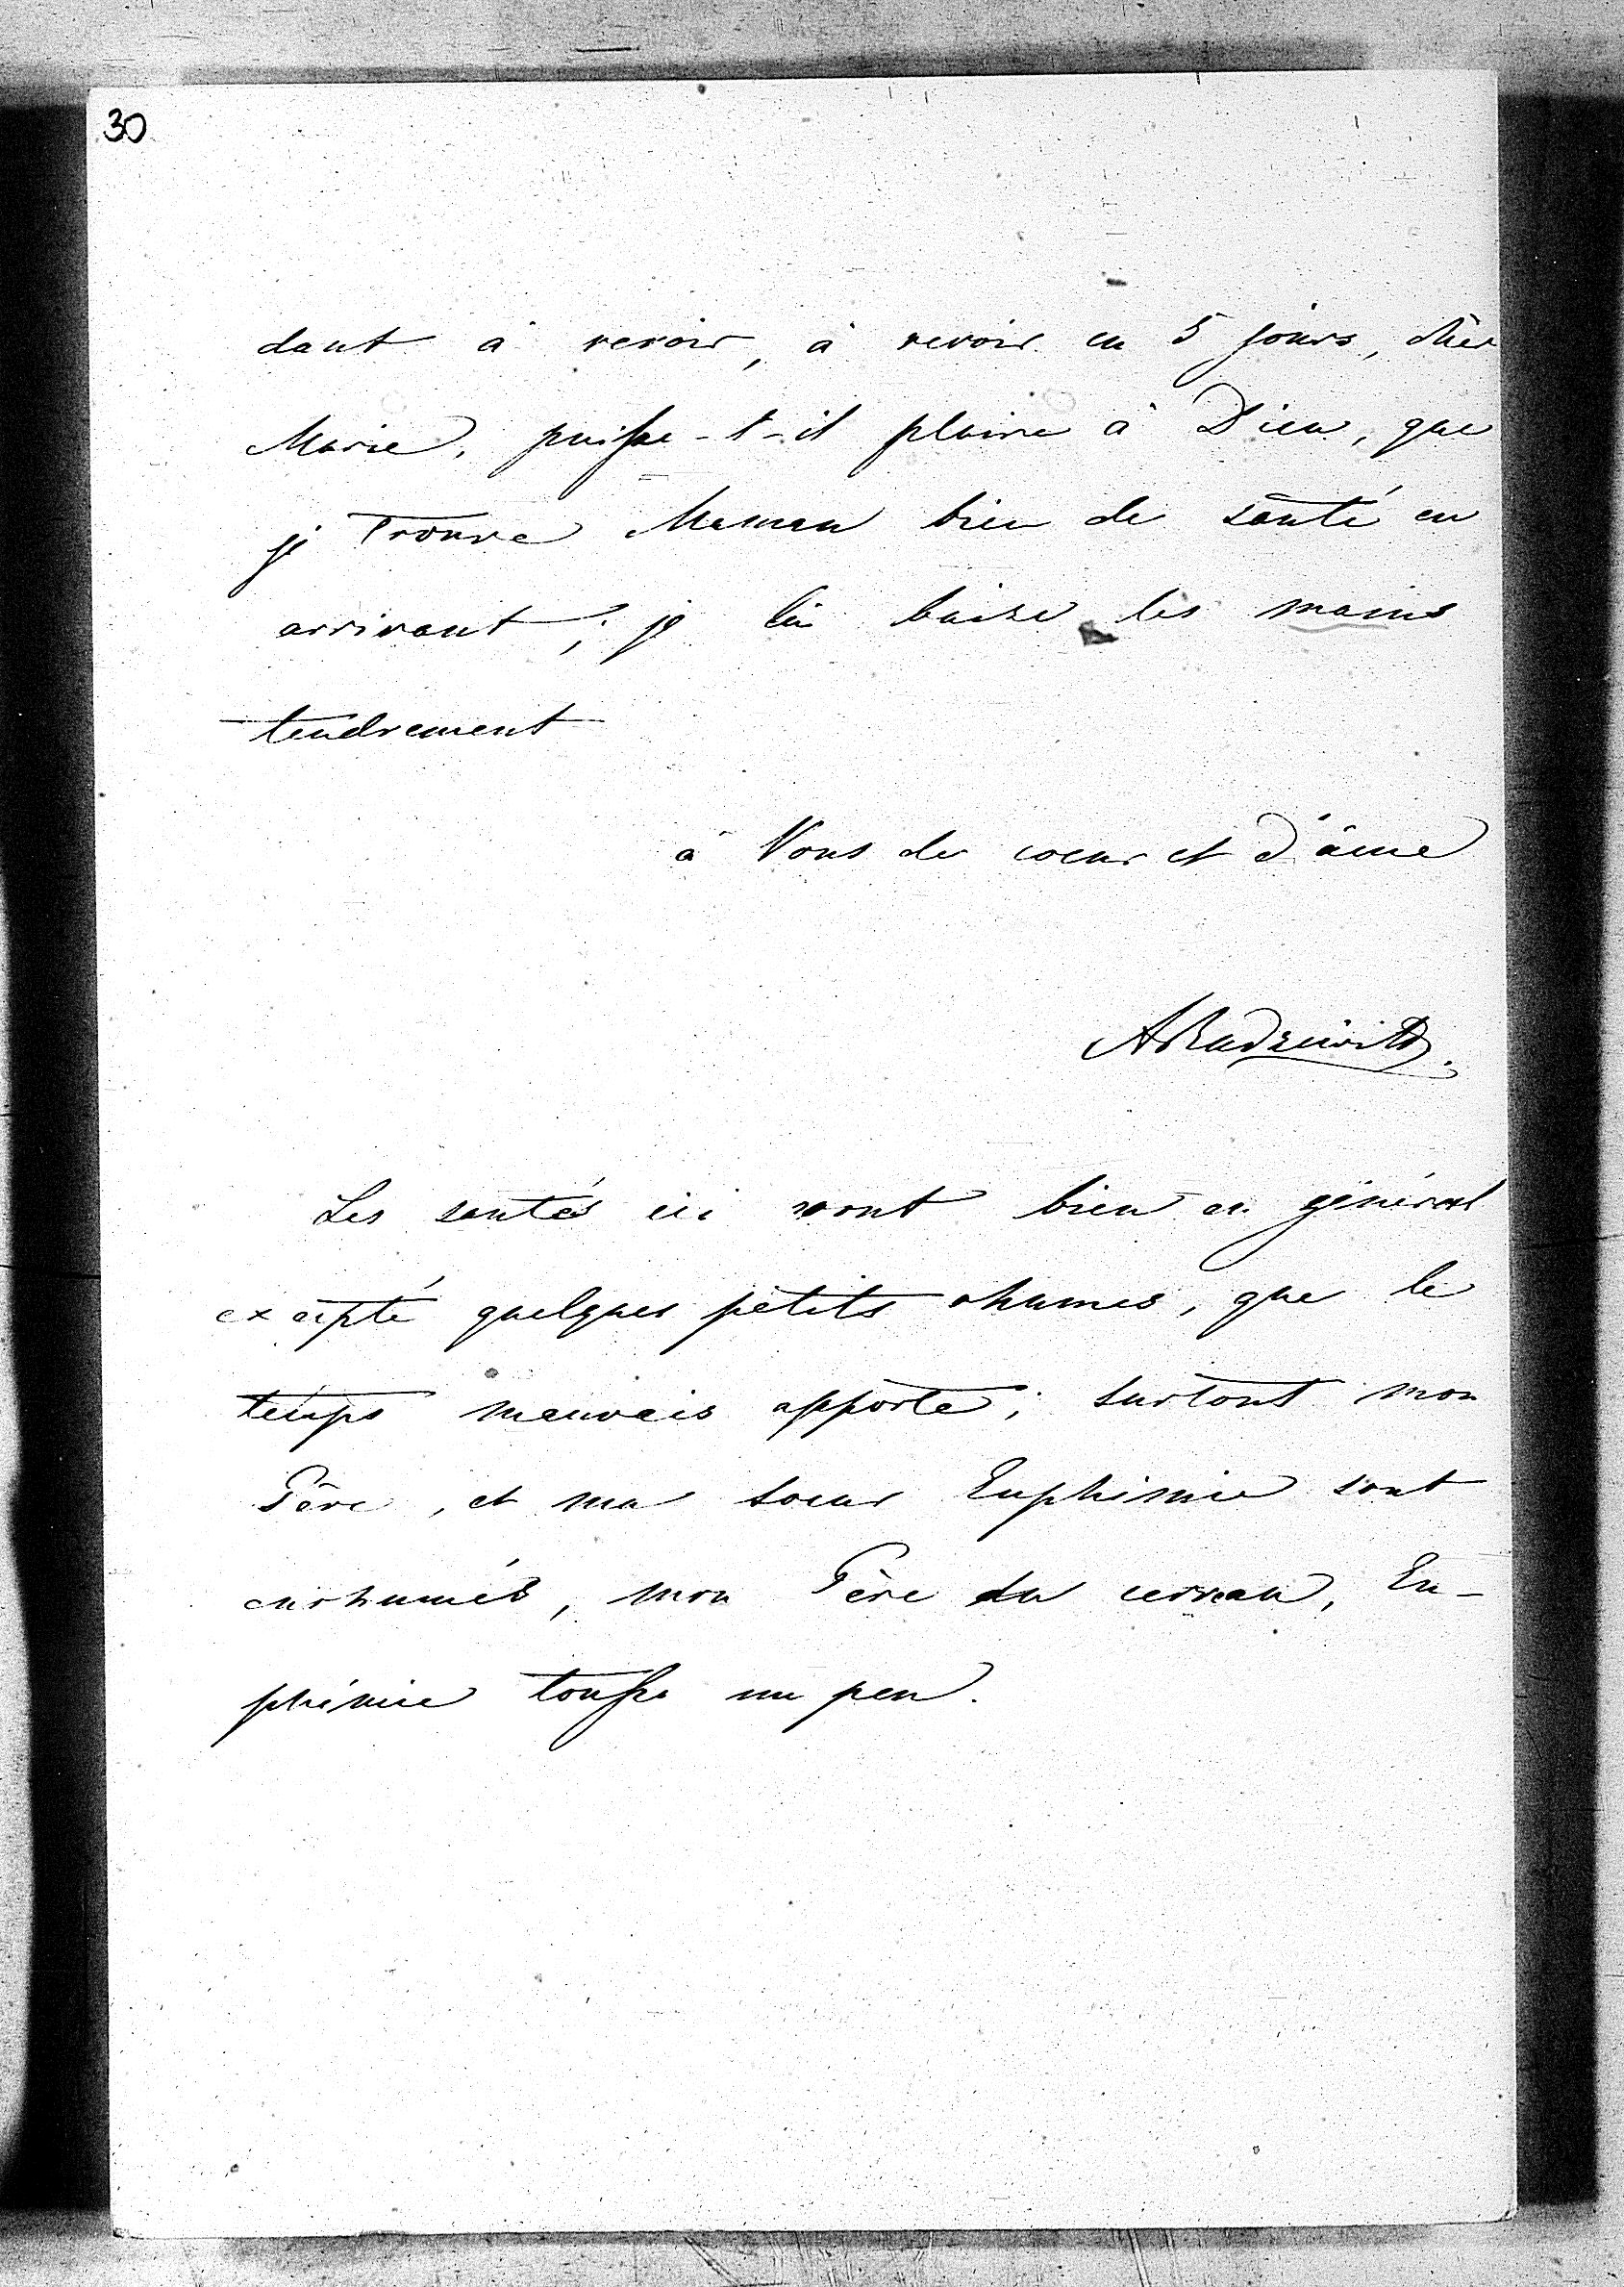 30
dant à revoir, à revoir en 5 jours, chèr
Marie, puisse-t-il plaire à Dieu, que
je trouve Maman bien de santé en
arrivant; je lui baise les mains
tendrement
à Vous de coeur et d'âme
ARadziwill.
Les santés ici vont bien en général
excepté quelques petits rhumes, que le
temps mauvais apporte; surtout mon
Père, et ma soeur Euphémie sont
enrhumés, mon Père du cerveau, Eu-
phémie tousse un peu.